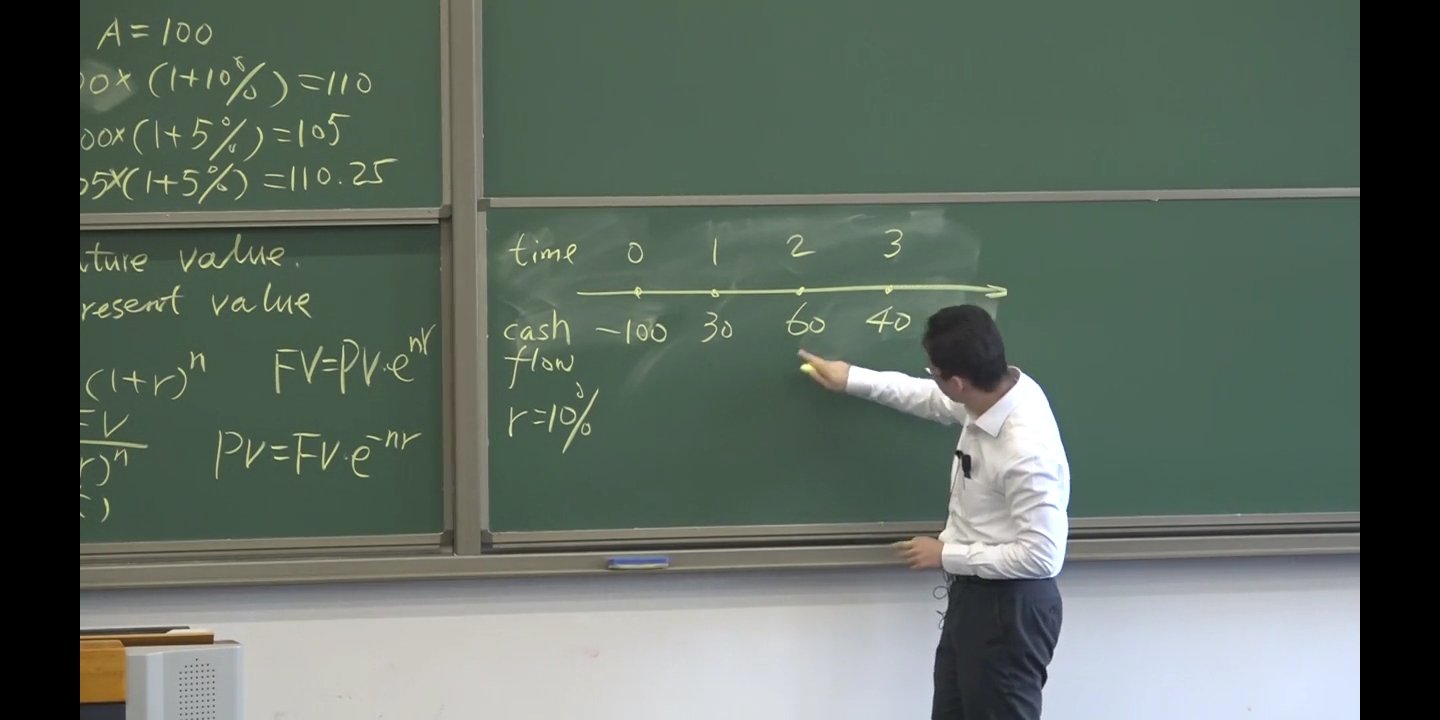 A=100
00×(1+10%)=110
00×(1+5%)=105
05×(1+5%)=110.25
ture value.
resent value
(1+r)^n FV=PV·e^{nr}
FV
r)^n PV=FV·e^{-nr}
time 0 1 2 3
cash -100 30 60 40
flow
r=10%